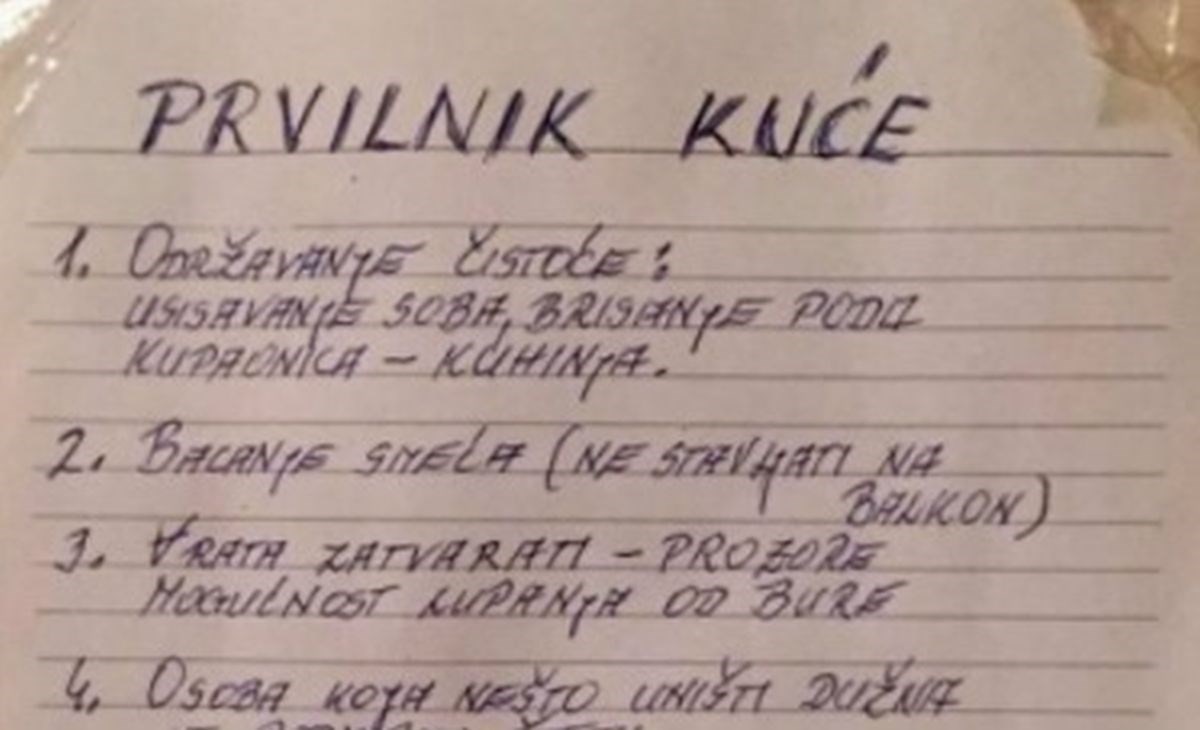 PRVILNIK KUĆE
1. ODRŽAVANJE ČISTOĆE:
USISAVANJE SOBA, BRISANJE PODA
KUPAONICA - KUHINJA.
2. BACANJE SMEĆA (NE STAVLJATI NA
BALKON)
3. VRATA ZATVARATI - PROZORE
MOGUĆNOST LUPANJA OD BURE
4. OSOBA KOJA NEŠTO UNIŠTI DUŽNA